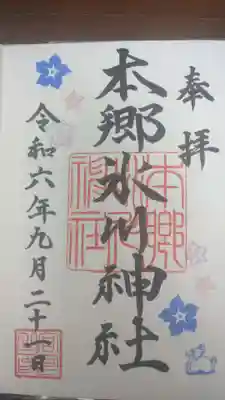 奉拝
本郷氷川神社
本郷氷川神社
令和六年九月二十一日